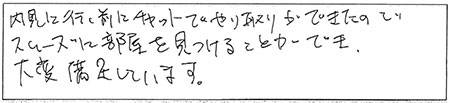 内見に行く前にチャットでやり取りができたので
スムーズに部屋を見つけることができ、
大変満足しています。